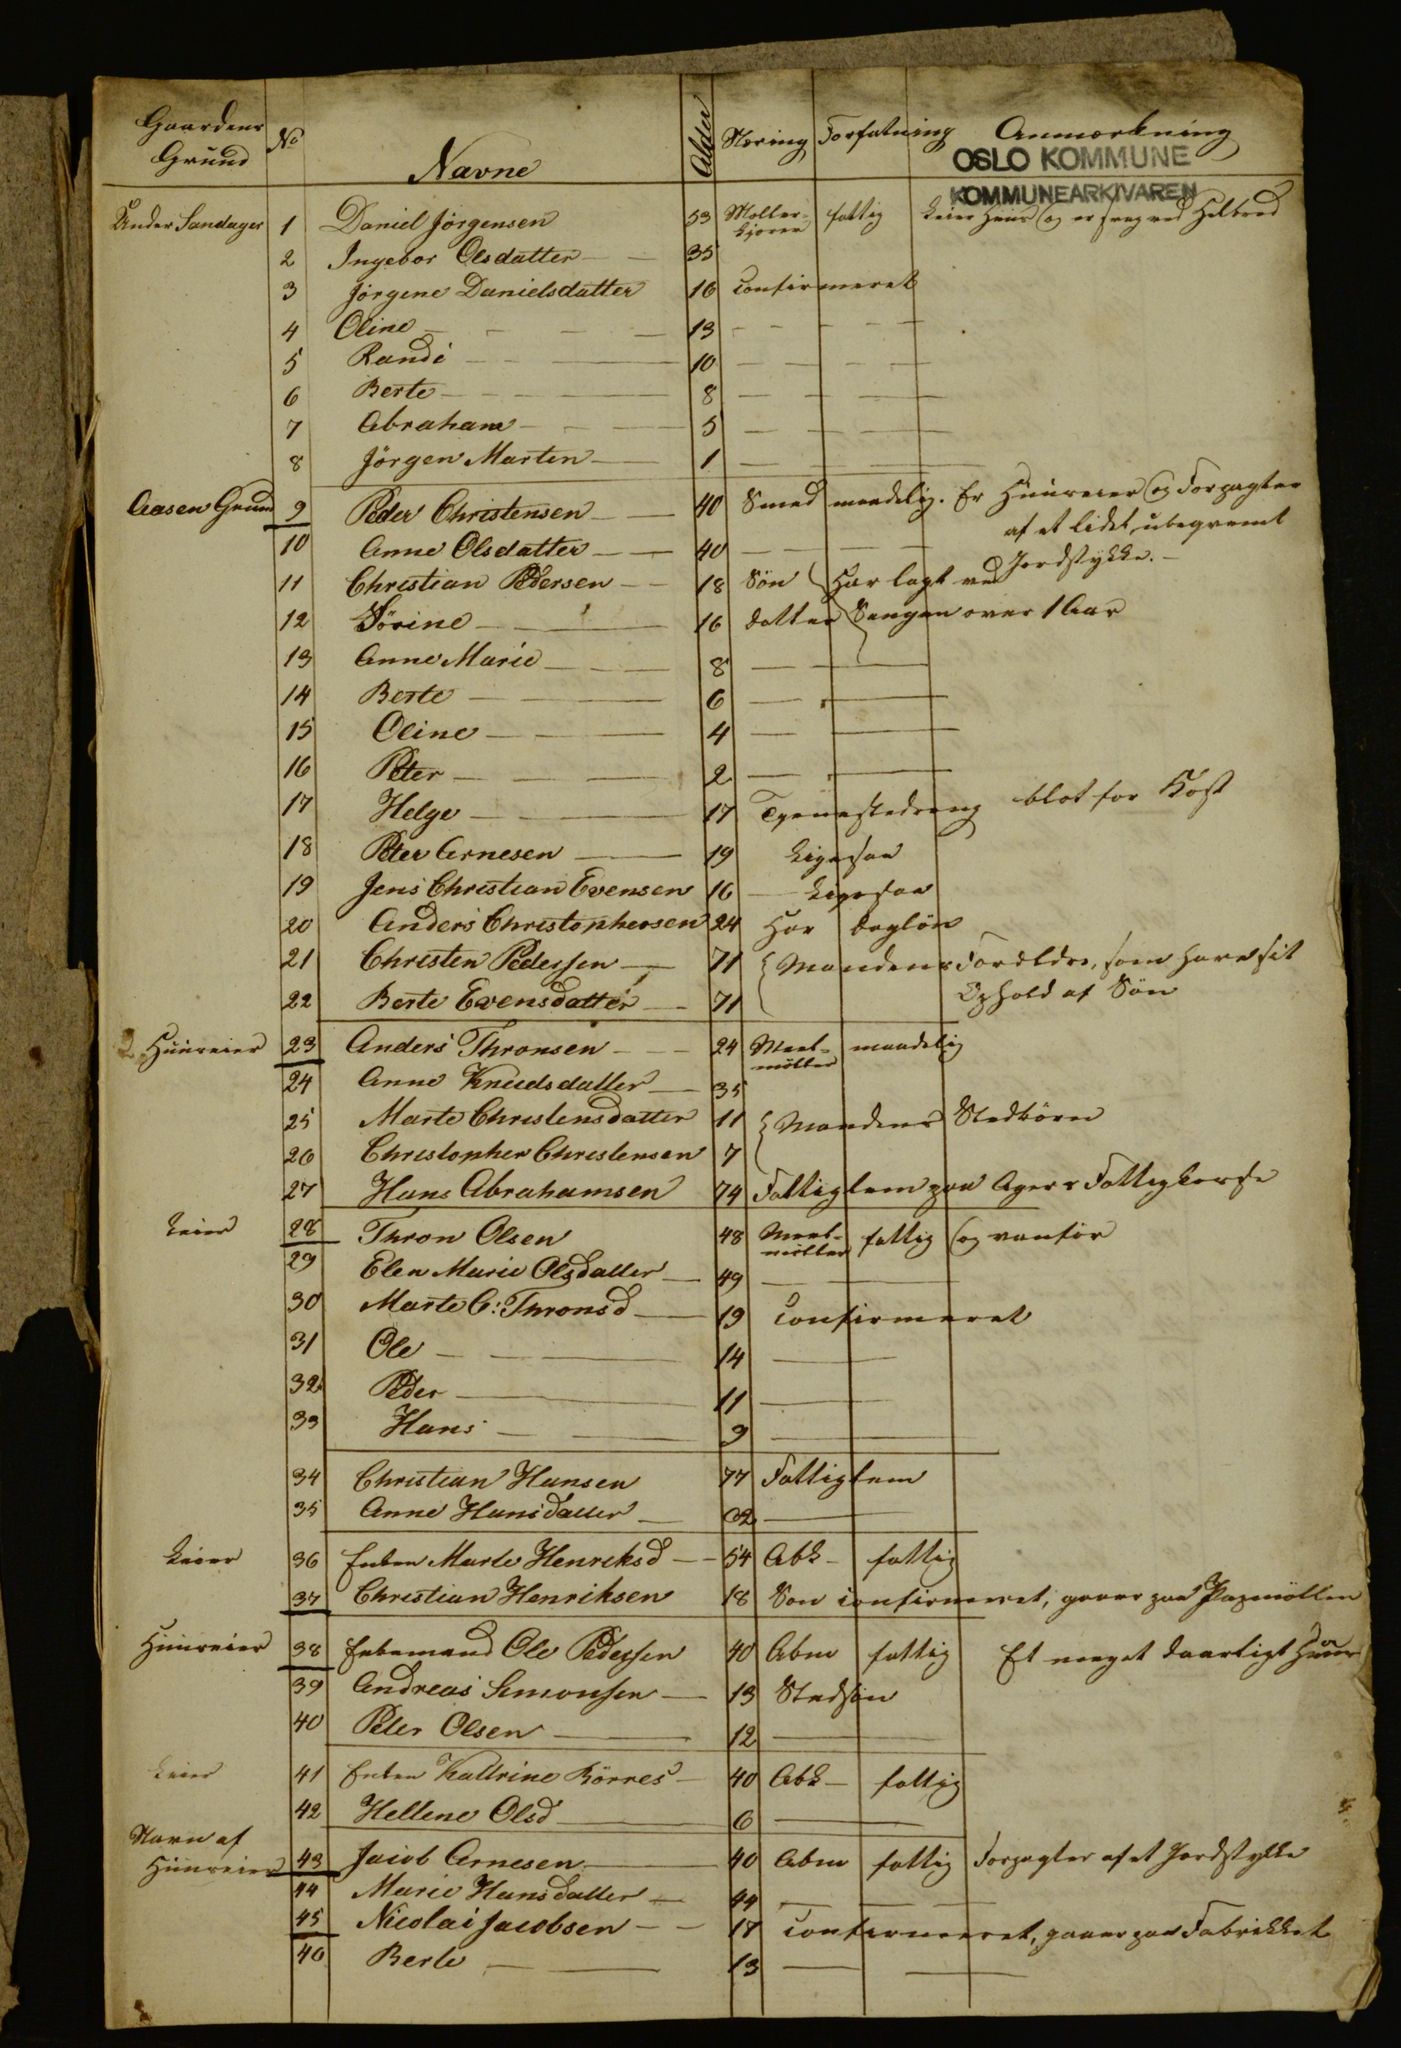 Gaardens Grund No Navne Alder Næring Forfatning Anmærkning
OSLO KOMMUNE
KOMMUNEARKIVAREN
Under Sandager 1 Daniel Jörgensen 53 Møllerkjører fattig Leier Huus og er svag ved Helbred
2 Ingebor Olsdatter — — 35
3 Jörgine Danielsdatter 16 Confirmeret
4 Oline — — — — 13 — — — — —
5 Randi — — — 10 — — — —
6 Berte — — — — 8 — — — —
7 Abraham — — — 5 — — — —
8 Jörgen Martin — 1 — — —
Aasen Grund 9 Peder Christensen — — 40 Smed maadelig. Er Huuseier og Forpagter
af et lidet ubeqvemt
10 Anne Olsdatter — — 40 — — — — Jordstykke. —
11 Christian Pedersen — — 18 Søn { Har lagt ved
12 Sörine — — 16 datter Sengen over 1 Aar
13 Anne Marie — — — 8 — — —
14 Berte — — — 6 — —
15 Oline — — — 4 — —
16 Peter — — — 2 — —
17 Helge — — — 17 Tjenestedreng blot for Kost
18 Peter Arnesen — — 19 Ligesaa
19 Jens Christian Evensen 16 — Ligesaa
20 Anders Christophersen 24 Har Dagløn
21 Christen Pederssen — 71 { Mandens Forældre, som have sit
22 Berte Evensdatter — 71 Ophold af Søn
2 Huuseier 23 Anders Thronsen — — — 24 Meelmöller maadelig
24 Anne Knudsdatter — 35
25 Marte Christensdatter 11 { Mandens Stedbörn
26 Christopher Christensen 7
27 Hans Abrahamsen 74 Fattiglem paa Agers Fattigkasse
Leier 28 Thron Olsen 48 Meelmöller fattig og vanför
29 Elen Marie Olsdatter — 49 — —
30 Marte C: Thronsd — 19 Confirmeret
31 Ole — — — 14 —
32 Peder — — 11 —
33 Hans — — 9 —
34 Christian Hansen 77 Fattiglem
35 Anne Hansdatter — 62 —
Leier 36 Enken Marte Henriksd — — 54 Abk — fattig
37 Christian Henriksen 18 Søn Confirmeret, gaaer paa Papmöllen
Huuseier 38 Enkemand Ole Pederssen 40 Abm fattig Et meget daarligt Huus
39 Andreas Simonssen — 13 Stedsön
40 Peter Olsen — 12 —
Leier 41 Enken Kattrine Börres — 40 Abk — fattig
42 Hellene Olsd — 6 —
Navn af
Huuseier 43 Jacob Arnesen — 40 Abm fattig Forpagter af et Jordstykke
44 Marie Hansdatter — 44 — — —
45 Nicolai Jacobsen — — 17 Confirmeret, gaaer paa Fabrikket
46 Berte — — 13 — —